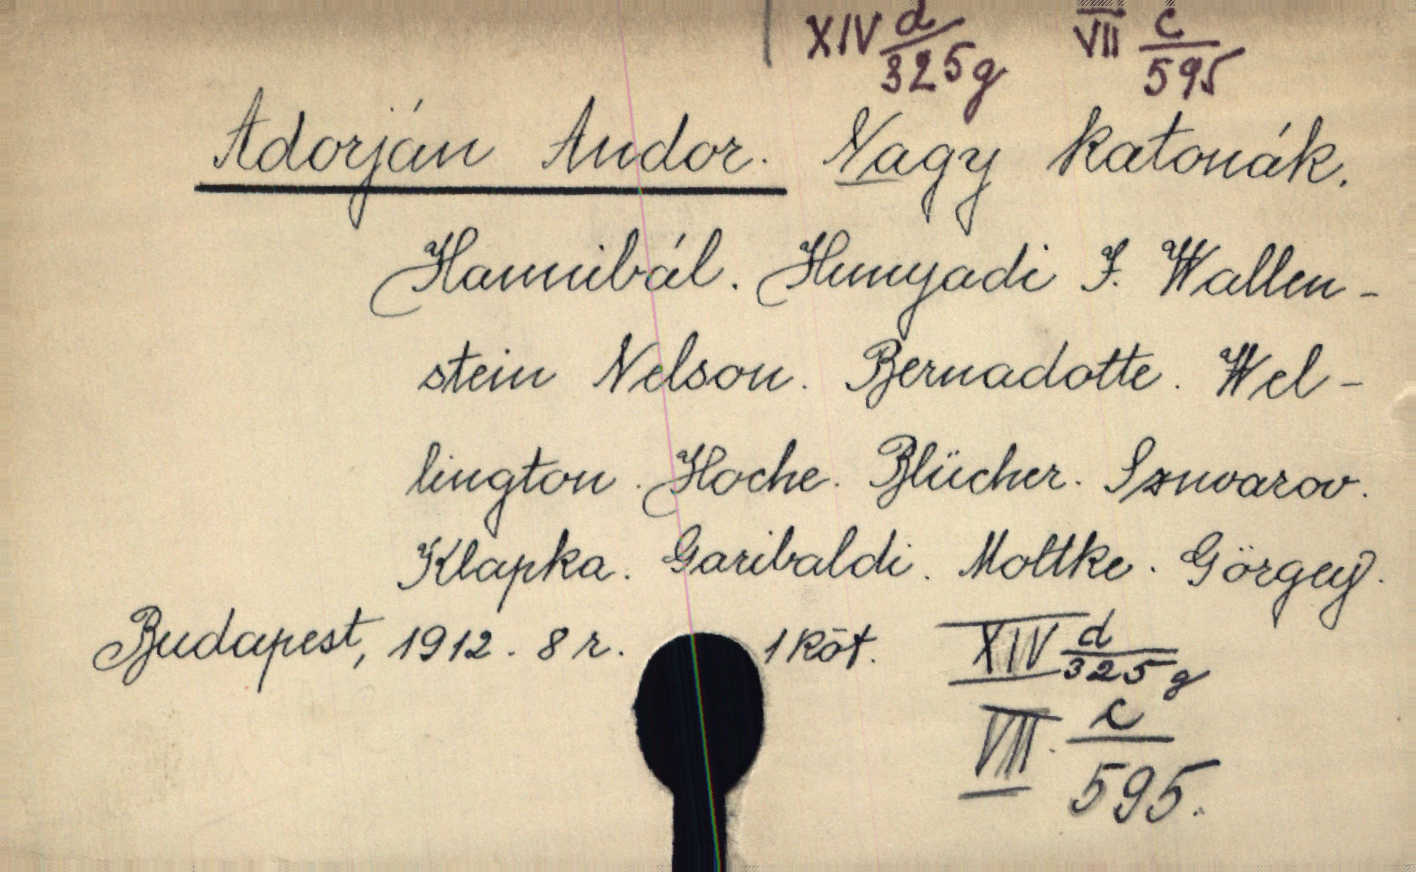 XIV d/325g VII c/595
Adorján Andor. Nagy katonák.
Hannibál. Hunyadi J. Wallen-
stein Nelson. Bernadotte. Wel-
lington. Hoche. Blücher. Szuvarov.
Klapka. Garibaldi. Moltke. Görgey.
Budapest, 1912. 8 r. 1 köt. XIV d/325g
VII. c/595.